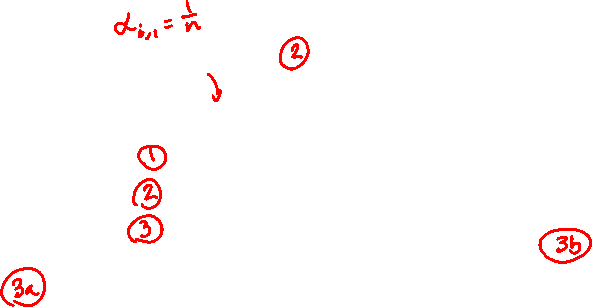 α_{i,1} = 1/n
2
1
2
3
3b
3a